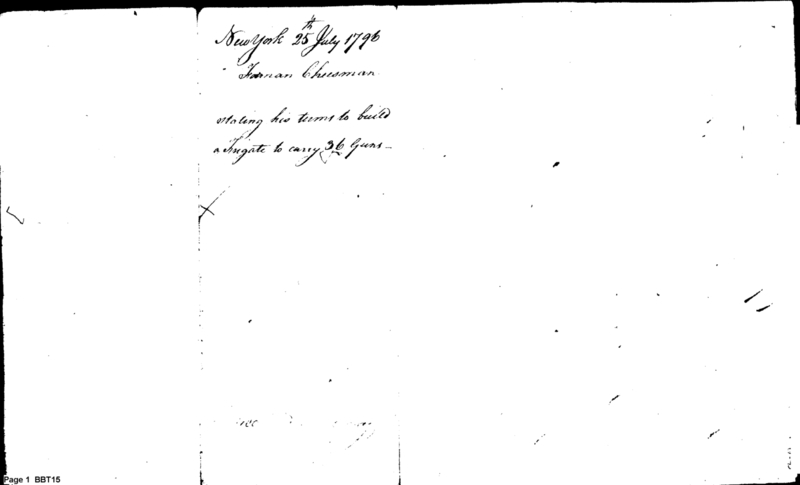 New York 25th July 1796
Forman Cheesman
stating his terms to build
a Frigate to carry 36 Guns -
Page 1 BBT15